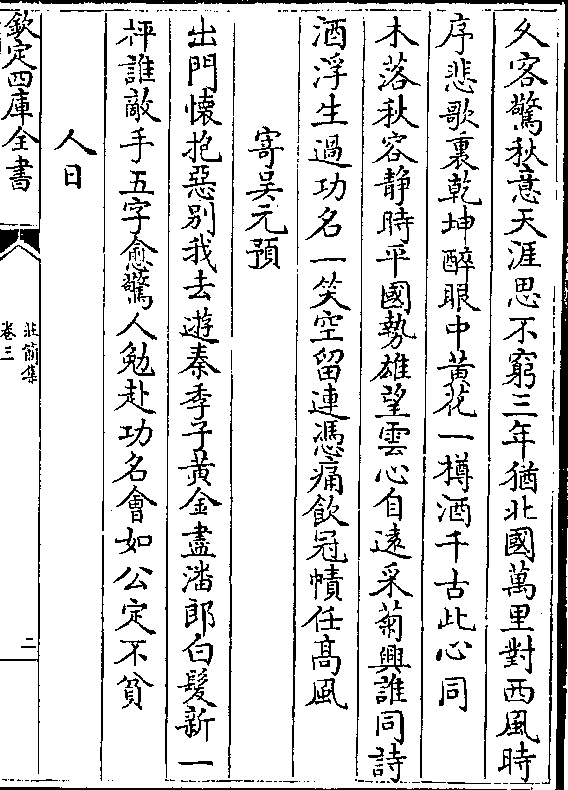 久客驚秋意天涯思不窮三年猶北國萬里對西風時
序悲歌裏乾坤醉眼中黄花一樽酒千古此心同
木落秋容静時平國勢雄望雲心自遠采菊興誰同詩
酒浮生過功名一笑空留連憑痛飲冠幘任髙風
寄吴元預
出門懐抱惡别我去遊秦季子黄金盡潘郎白髮新一
枰誰敵手五字愈驚人勉赴功名會如公定不貧
人日
欽定四庫全書
莊簡集
卷三
二